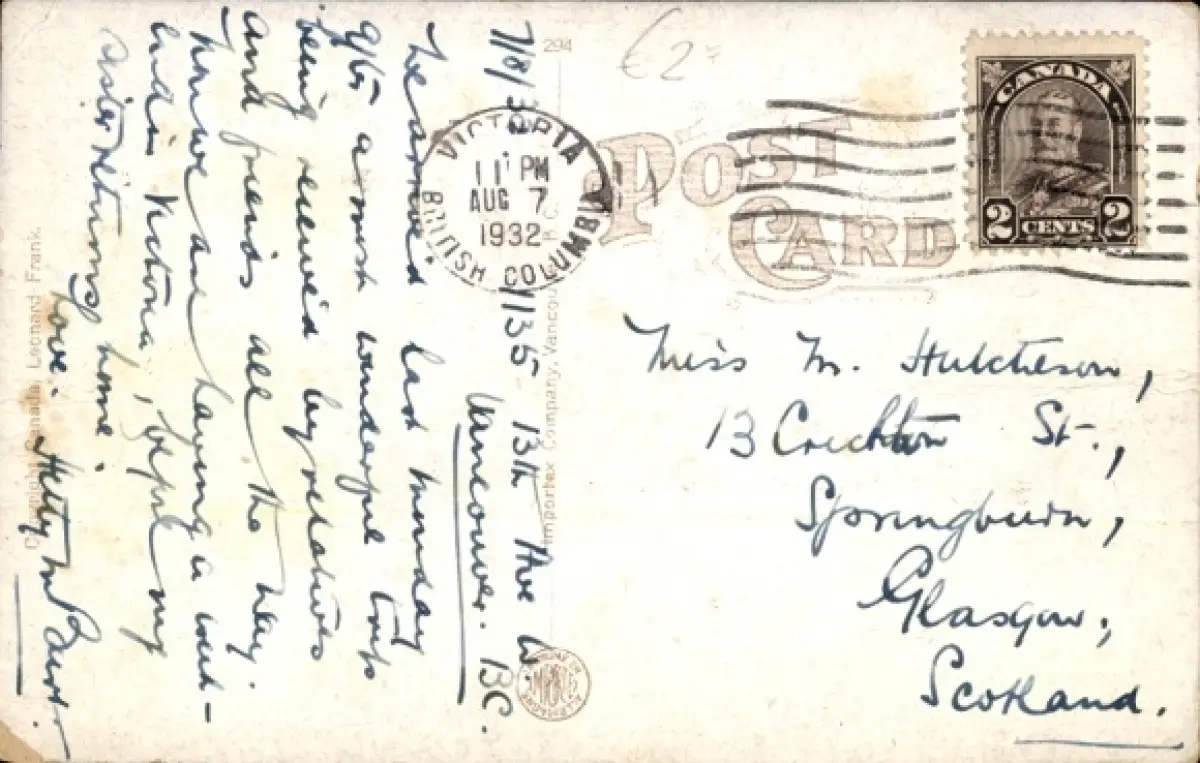 7/8/32
1135 13th Ave W.
Vancouver. BC.
We arrived last Monday
after a most wonderful trip
being received by relatives
and friends all the way.
Now we are having a week-
end in Victoria, before my
sister returning home.
Love. Hetty
294
£2
POST
CARD
VICTORIA
11 PM
AUG 7
1932
BRITISH COLUMBIA
CANADA
2 CENTS 2
Miss M. Hutcheson,
13 Crichton St.,
Springburn,
Glasgow,
Scotland.
Importex Company, Vancouver
Copyright Canada, Leonard Frank.